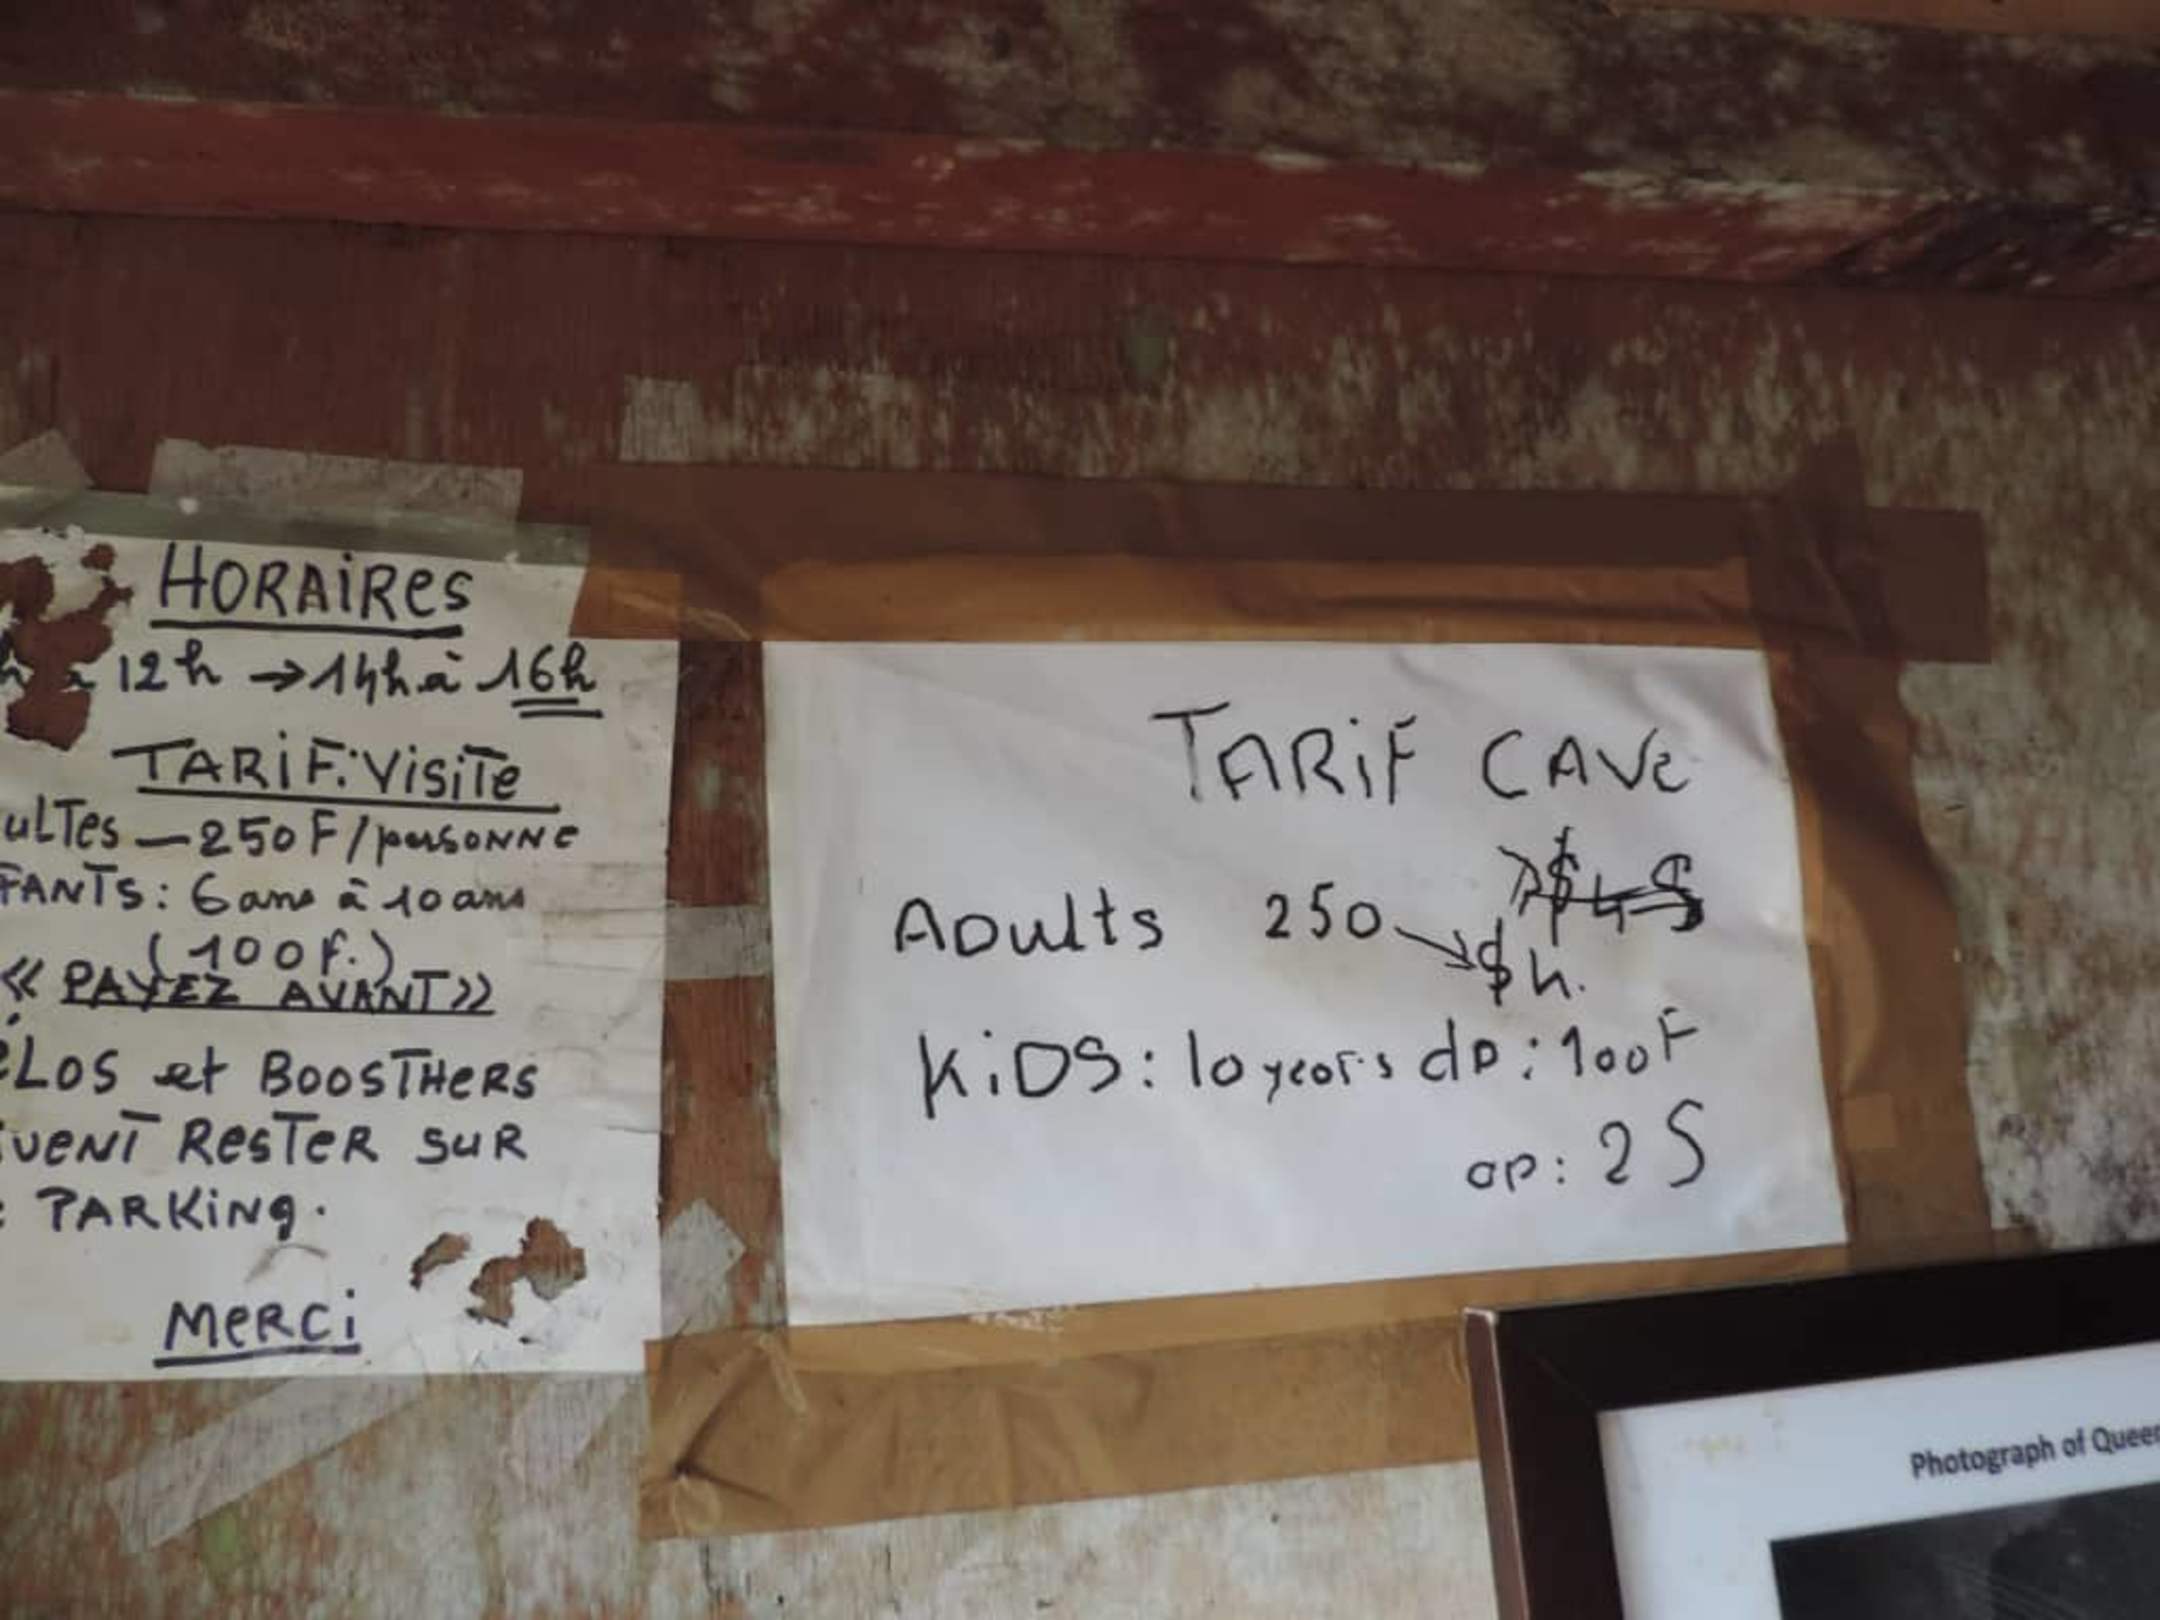 HORAIRES
à 12h → 14h à 16h
TARIF: VISITE
ULTES — 250F/personne
FANTS: 6 ans à 10 ans
(100F.)
« PAYEZ AVANT »
ÉLOS et BOOSTHERS
IVENT RESTER SUR
PARKING.
MERCI
TARIF CAVE
Adults 250 → $4.
KIDS: 10 years do: 100F
op: 2 S
Photograph of Queen